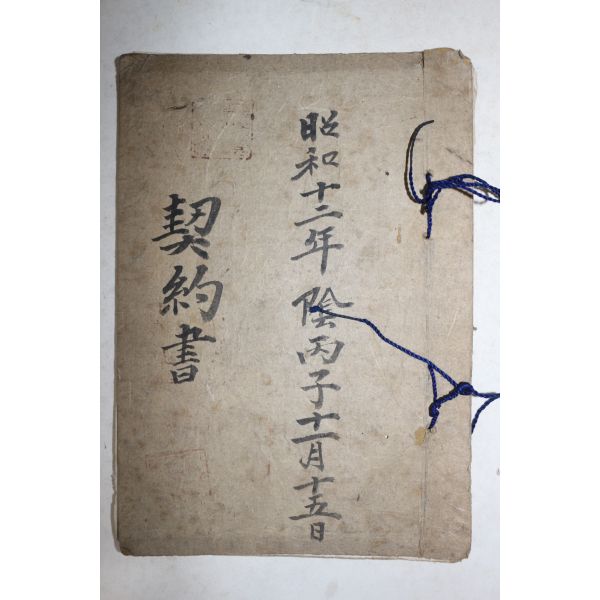 昭和十二年 陰丙子十一月十五日
契約書